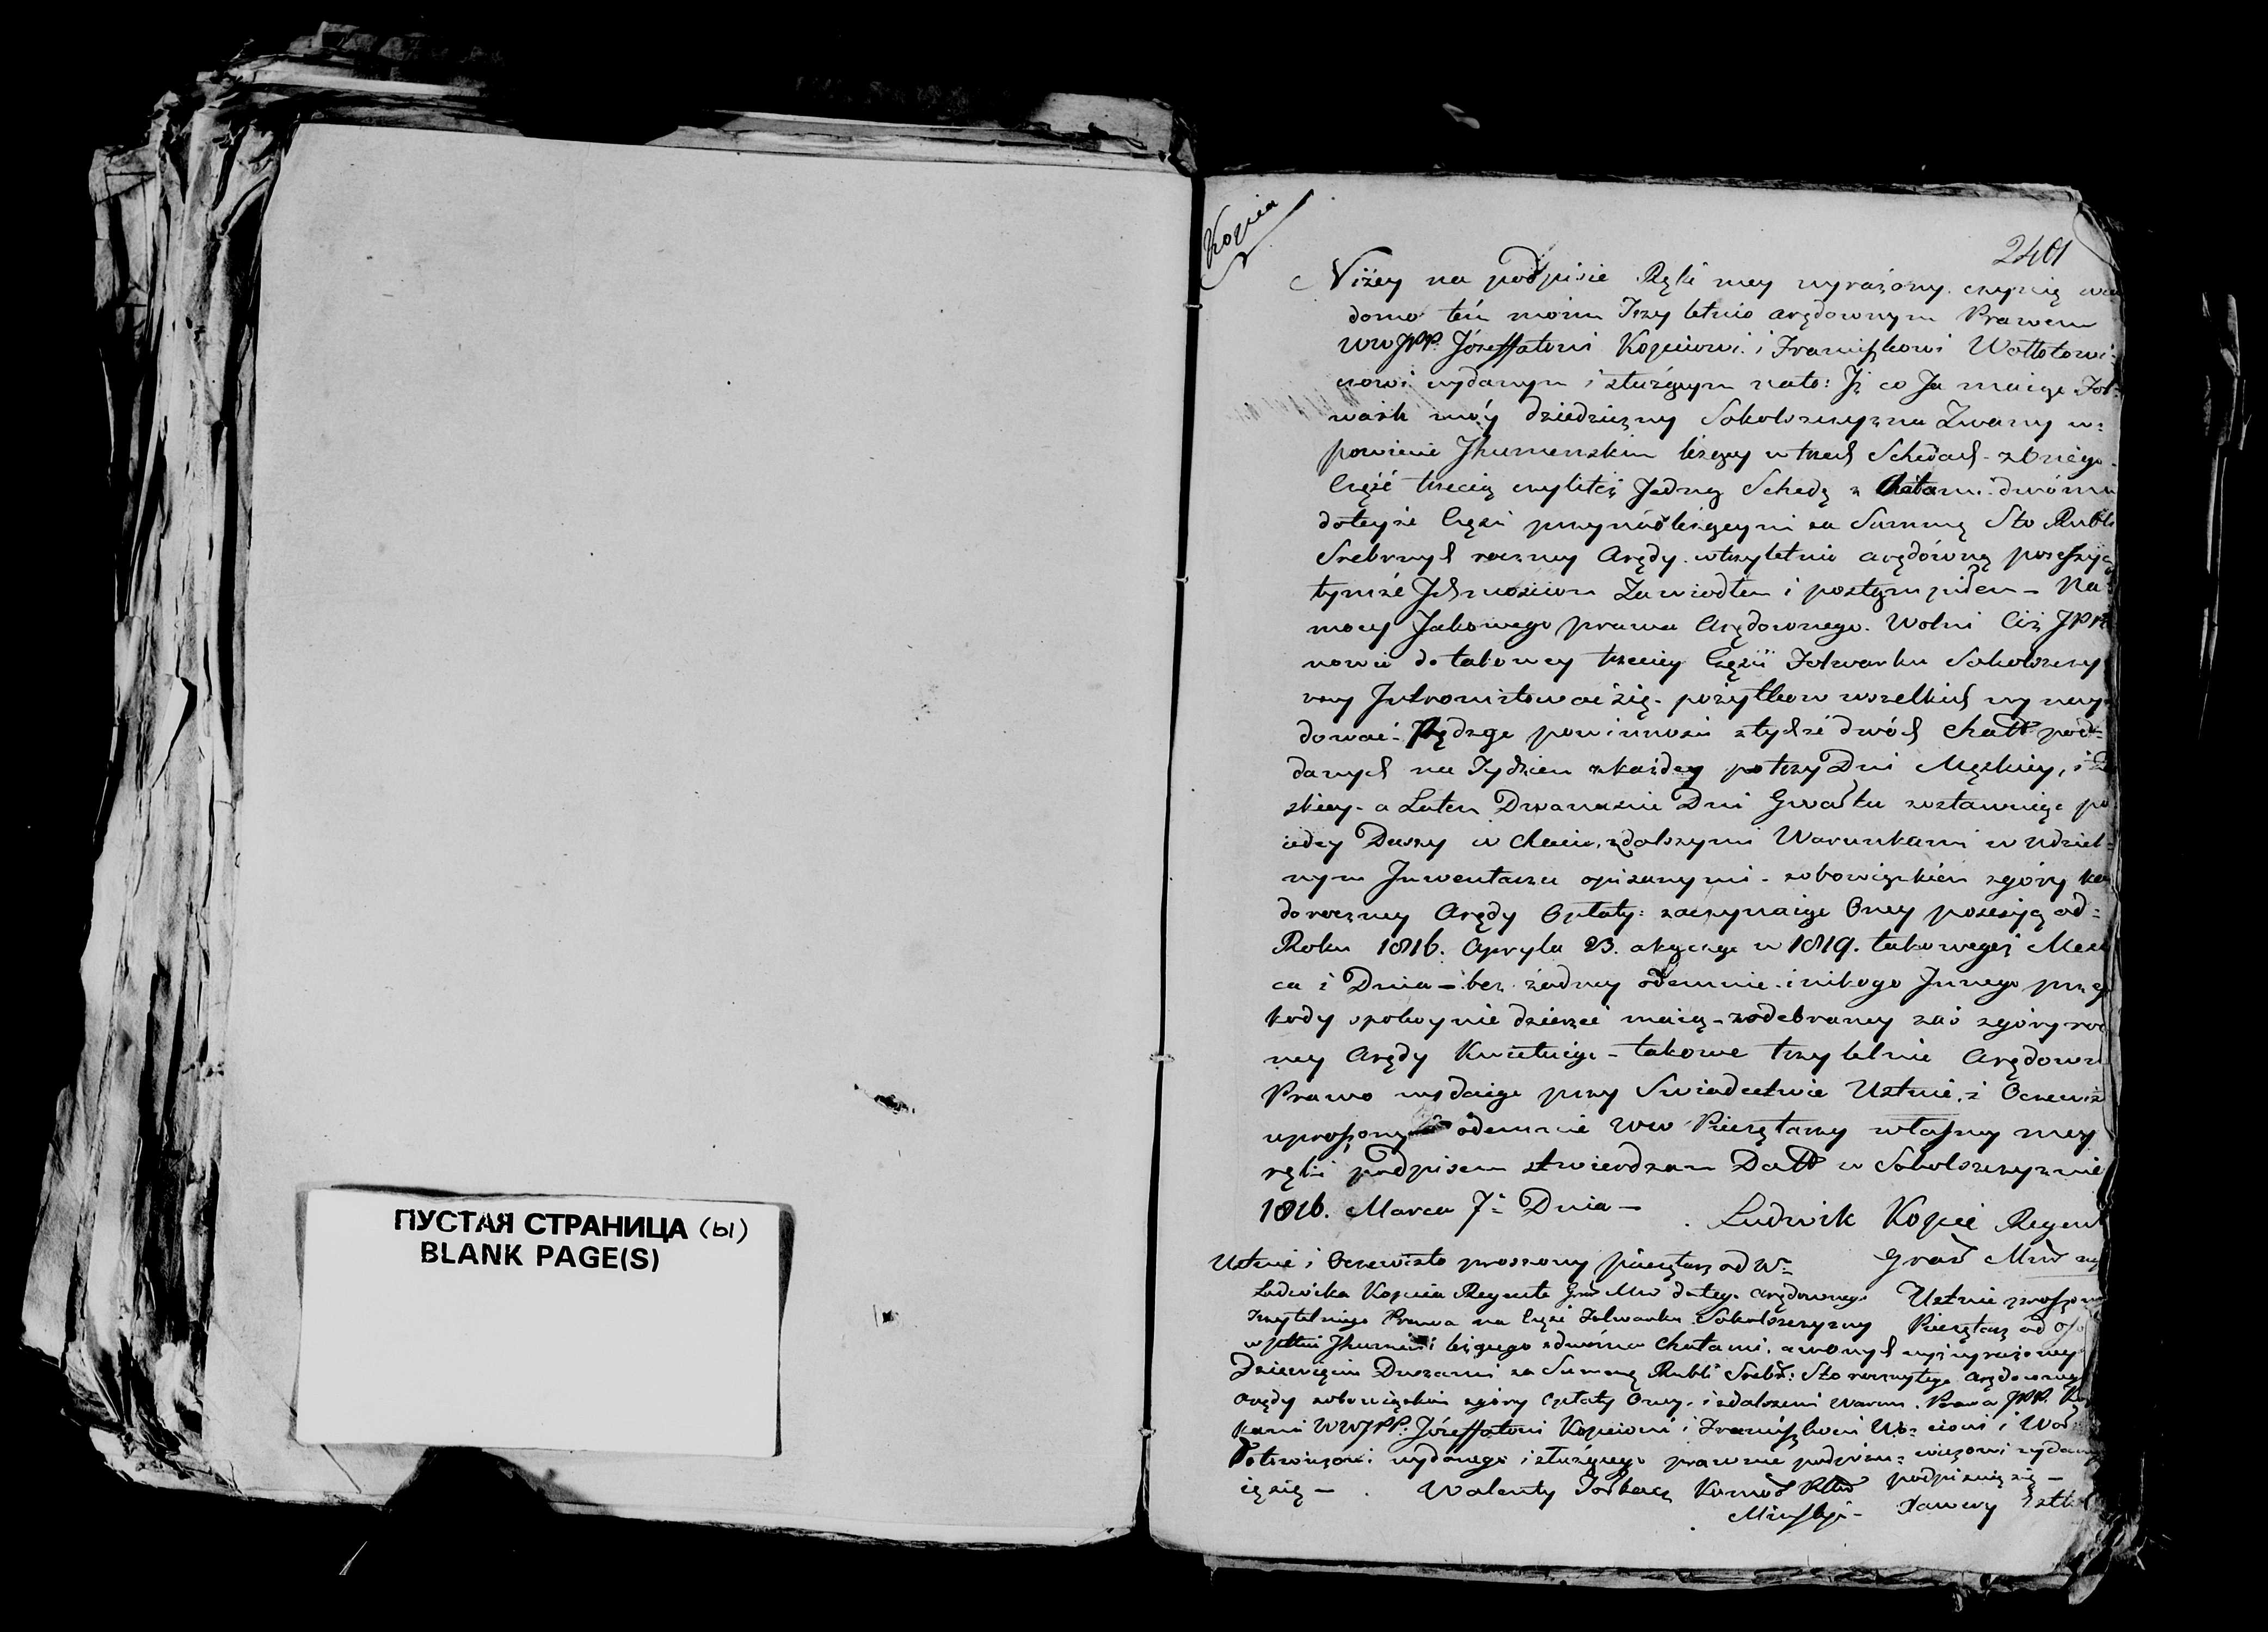 ПУСТАЯ СТРАНИЦА (ы)
BLANK PAGE(S)
Kopia
2401
Niżey na podpisie Ręki mey wyrażony czynię wia
domo tém moim Trzy letnio arędownym Prawem
WWJPP. Józeffatowi Kopciowi i Franciszkowi Wołłotowi=
czowi wydanym i służącym nato: Jż co Ja maiąc Fol=
wark móy dziedziczny Sokolszczyzna Zwany w=
powiecie Jhumenskim leżący w trzech Schedach zktórego
Część trzecią czylitéż Jedną Schedę z Chatami dwóma
doteyże Części przynáleżącymi za Summę Sto Rubli
Srebrnych roczney Arędy w trzyletnie arędówną possessyą
tymże Jchmościom Zawiodłem i postąmpiłem – Na
mocy Jakowego prawa Arędownego. Wolni Ciż JPP
nowie do takowey trzeciey Części Folwarku Sokolszczy
zny Jntromitować się pożytkow wszelkich wynay
dować. Pędząc powinności ztychże dwóch Chatt pod=
danych na Tydzien zkażdey po trzy Dni Męzkiey, i
skiey a Latem Dwanascie Dni Gwałtu zostawuiąc po
iedney Duszy w Chacie, zdalszymi Warunkami w udziel=
nym Jnwentarzu opisanymi zobowiązkiem zgóry ka
doroczney Arędy Opłaty: zaczynaiąc Oney possesyą od=
Roku 1816. Apryla 23. akączaąc w 1819. takowegoż Miesi
ca i Dnia – bez żadney odemnie i nikogo Jnnego przesz
kody spokoynie dzierżeć maią – zodebraney zaś zgóry rocz
ney Arędy Kwituiąc – takowe trzy letnie Arędowne
Prawo wydaiąc przy Swiadectwie Ustnie, i Oczewis
uproszonych odemnie WW Pieczętarzy własney mey
ręki podpisem stwierdzam Datt w Sokolszczyznie
1816. Marca 7º Dnia –
Ludwik Kopeć Regent
Grod Min
Ustnie i Oczewisto proszony pieczętarz od W=
Ludwika Kopcia Regenta Grod Min do tego arędownego
Trzyletniego Prawa na Część Folwarku Sokolszczyzny
w pttie Jhumen leżącego zdwóma Chatami, a wonych
Dziewięcia Duszami za Summę Rubli Srebr: Sto rocznytego
Arędy zobowiązkiem zgóry Opłaty Oney, i zdalszemi Warun
kami WWJPP: Józeffatowi Kopciowi i Franciszkowi Wo=
łłotowiczowi wydanego i służącego prawnie podpisu=
ię się –
Walenty Komor
Minskji –
Ustnie proszony
Pieczętarz od oso
wyżwyrażoney
Arędownego
Prawa JPP. Ko
ciowi i Woł
wiczowi wydan
podpisuię się –